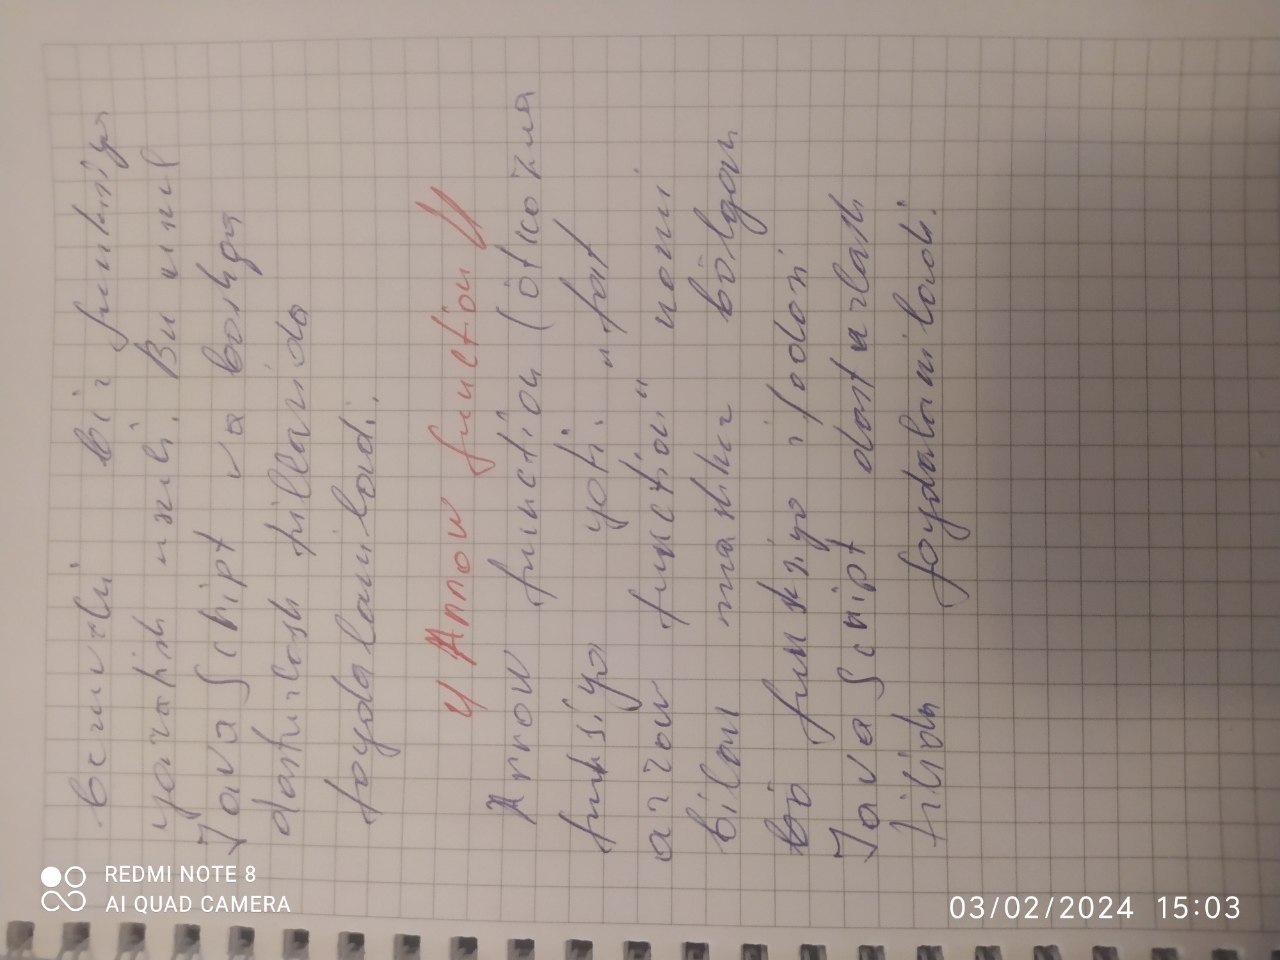 beruvchi bir funksiya
yaratish usuli. Bu usul
JavaScript va boshqa
dasturlash tillarida
foydalaniladi.
4 Arrow function //
Arrow function (ötkozma
funksiya yoki "fat
arrow function" nomi
bilan mashhur bölgan
bö funksiya ifodasi
JavaScript dasturlash
tilida foydalaniladi.
REDMI NOTE 8
AI QUAD CAMERA
03/02/2024 15:03